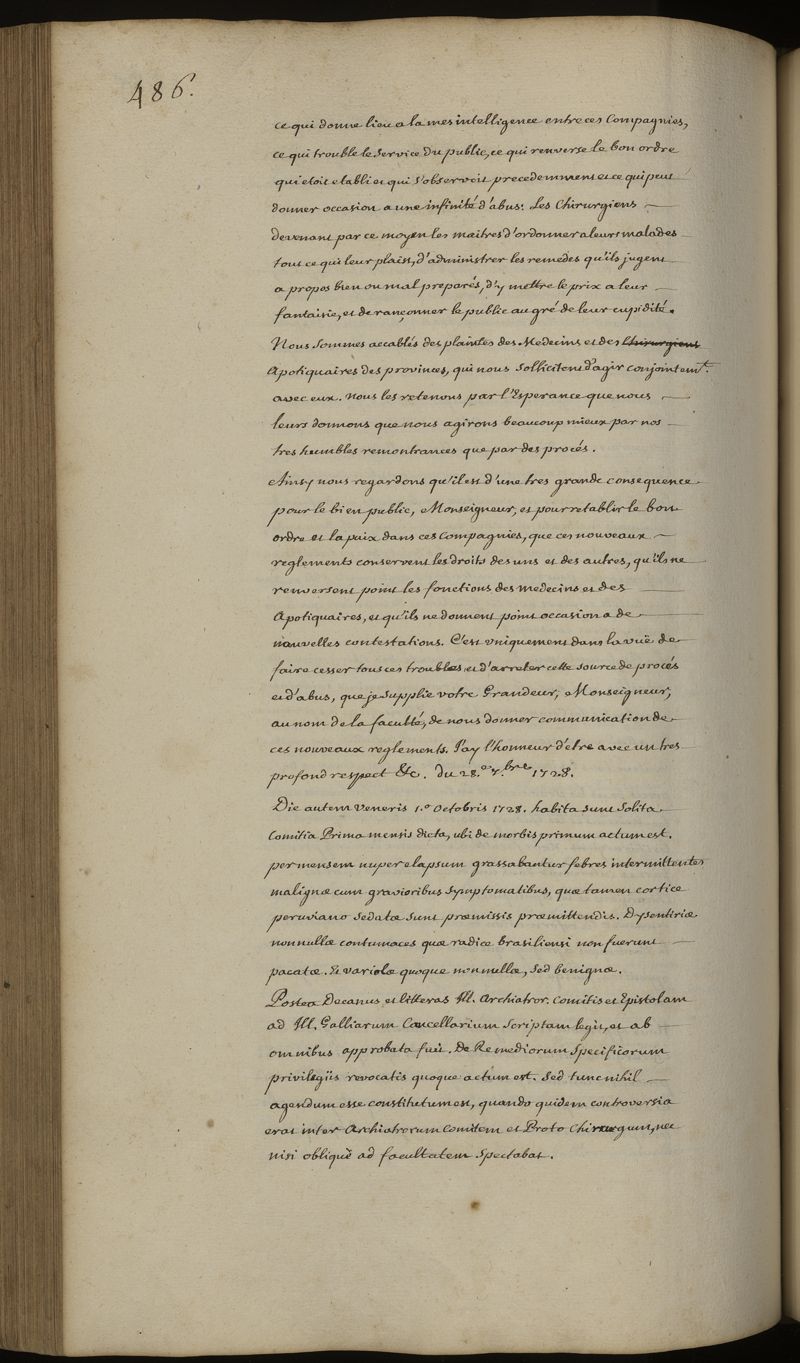 486.
ce qui donne lieu a la mesintelligence entre ces Compagnies,
ce qui trouble le service du public, ce qui renverse le bon ordre
qui etoit etabli et qui s'observoit precedemment et ce qui peut
donner occasion a une infinité d'abus. Les Chirurgiens
devenant par ce moyen les maitres d'ordonner a leurs malades
tout ce qui leur plaist, d'administrer les remedes qu'ils jugent
a propos bien ou mal preparés, d'y mettre le prix a leur
fantaisie, et de rançonner le public au gré de leur cupidité.
Nous sommes accablés des plaintes des Medecins et des Chirurgiens
Apotiquaires des provinces, qui nous sollicitent d'agir conjointemt.
avec eux. nous les retenons par l'Esperance que nous
leurs donnons que nous agirons beaucoup mieux par nos
tres humbles remontrances que par des procés.
Ainsy nous regardons qu'il est d'une tres grande consequence
pour le bien public, Monseigneur, et pour retablir le bon
ordre et la paix dans ces Compagnies, que ces nouveaux
reglements conservent les droits des uns et des autres, qu'ils ne
renversent point les fonctions des medecins et des
Apotiquaires, et qu'ils ne donnent point occasion a de
nouvelles contestations. C'est uniquement dans la vuë de
faire cesser tous ces troubles et d'arreter cette source de procés
et d'abus, que je supplie votre Grandeur, Monseigneur,
au nom de la faculté, de nous donner communication de
ces nouveaux reglements. J'ay l'honneur d'etre avec un tres
profond respect &c. Du 28.e 7.bre 1728.
Die autem Veneris 1.o Octobris 1728. habita sunt solita
Comitia Prima mensis dicta, ubi de morbis primum actum est.
per mensem nuper elapsum grassabantur febres intermittentes
malignæ cum gravioribus symptomatibus, quæ tamen cortice
peruviano sedatæ sunt præmissis præmittendis. Dysentiriæ
nonnullæ contumaces quæ radice brasiliensi non fuerunt
pacatæ. Et variolæ quoque nonnullæ, sed benignæ.
Postea Decanus et litteras Ill. Archiatror. Comitis et Epistolam
ad Ill. Galliarum Cancellarium scriptam legit, et ab
omnibus approbata fuit. De Remediorum specificorum
privilegiis revocatis quoque actum est. Sed tunc nihil
agendum esse constitutum est, quando quidem controversia
erat inter Archiatrorum Comitem et Proto Chirurgum, nec
nisi obliquè ad facultatem spectabat.